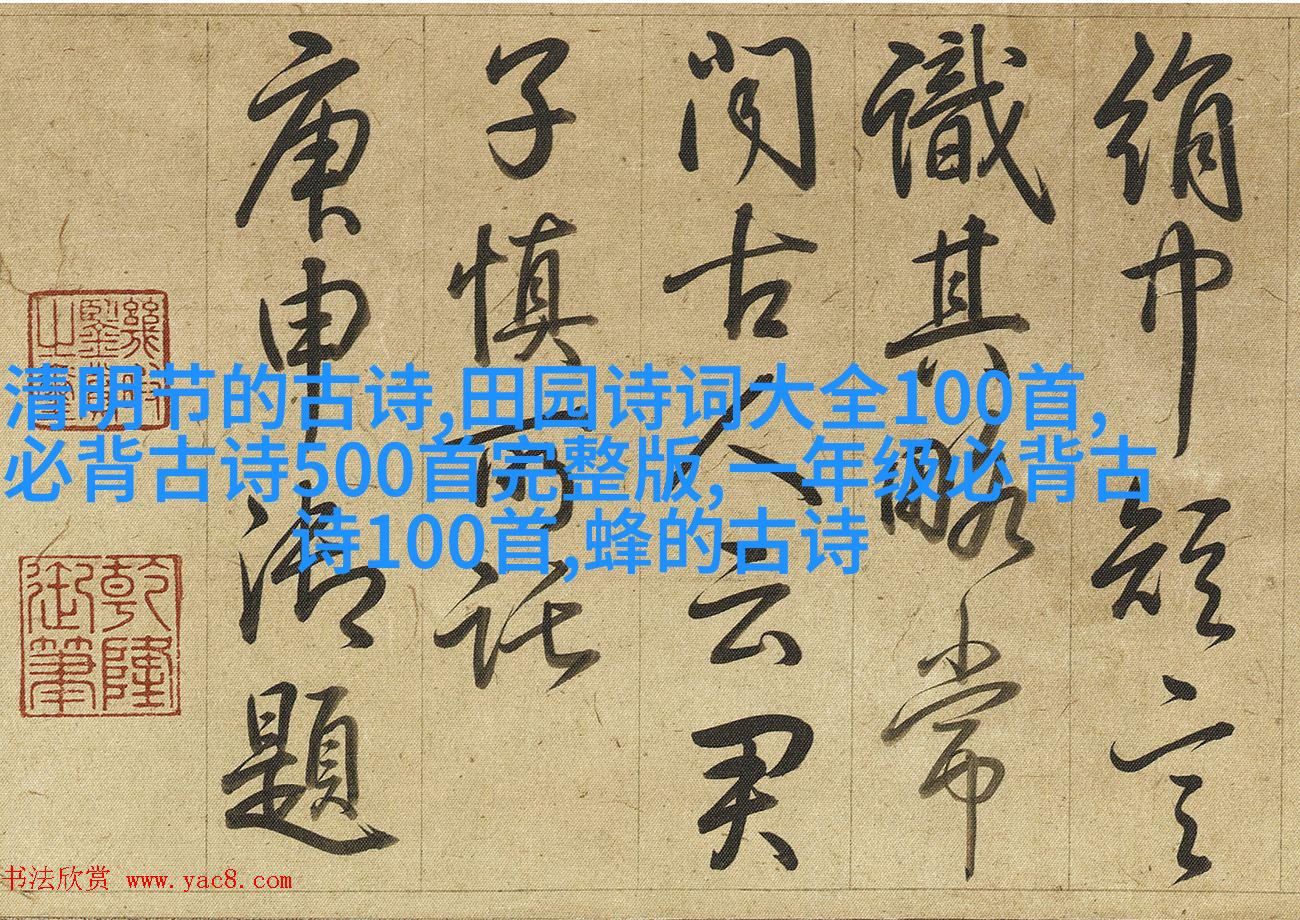 絹中短言
識其略常
聞古人云君
子慎所託
庚申御題
乾隆御筆
清明节的古诗,田园诗词大全100首,
必背古诗500首完整版,一年级必背古
诗100首,蜂的古诗
书法欣赏 www.yac8.com